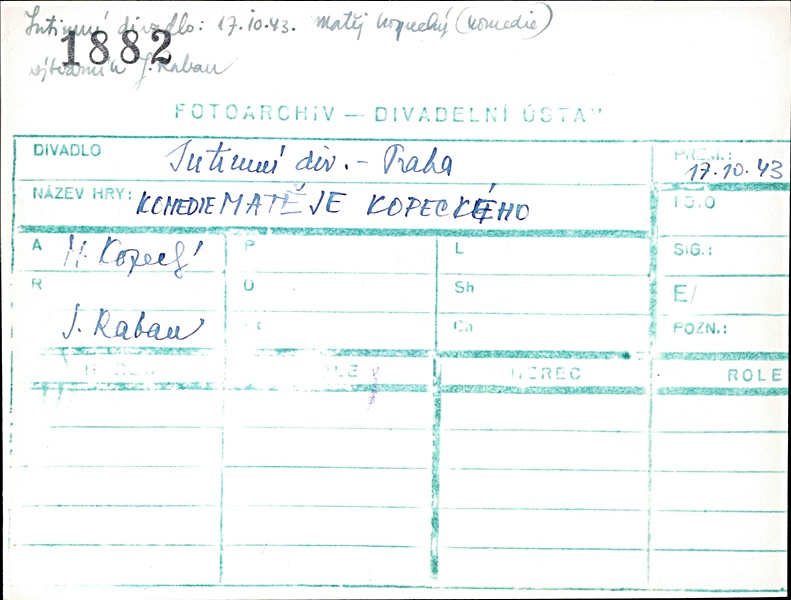 Intimní divadlo: 17.10.43. Matěj Kopecký (komedie)
1882
výtvarník J. Raban
FOTOARCHIV — DIVADELNÍ ÚSTAV
DIVADLO Intimní div. - Praha PREM.: 17.10.43
NÁZEV HRY: KOMEDIE MATĚJE KOPECKÉHO FOTO
A M. Kopecký P L SIG.:
R J. Raban O Sh E/
Ch POZN.:
HEREC ROLE HEREC ROLE